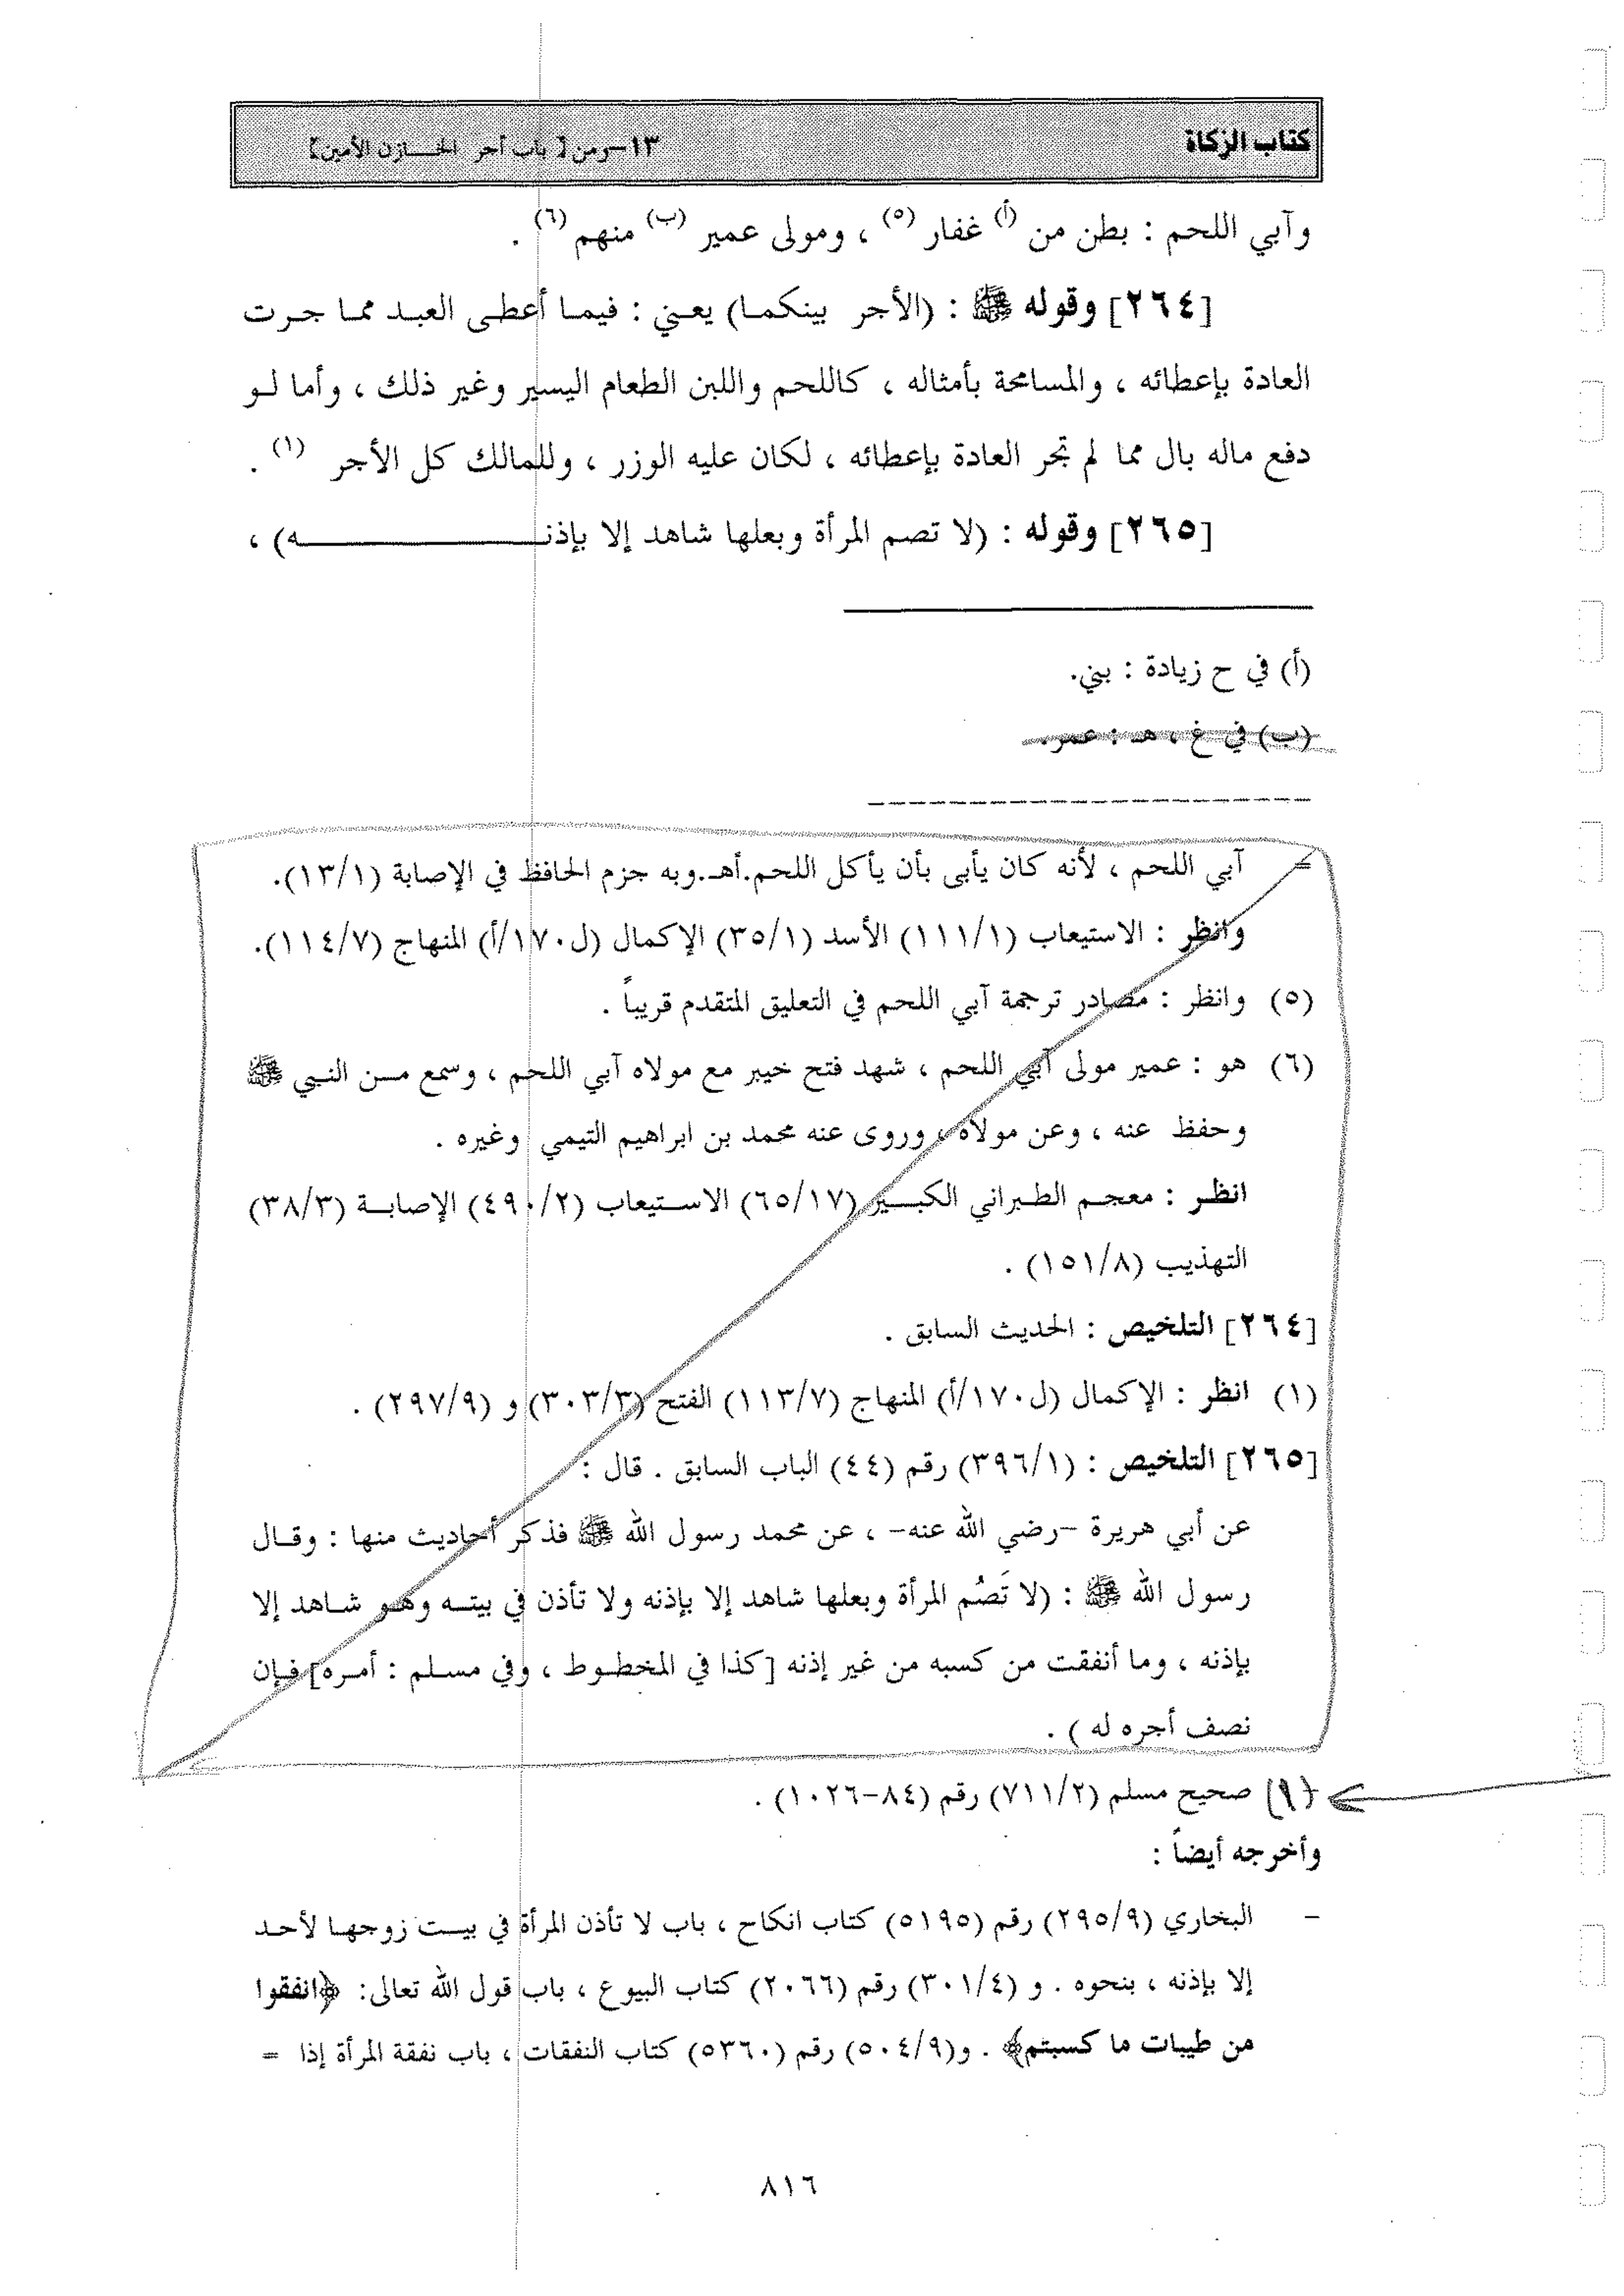 كتاب الزكاة ١٣-ومن [ باب أجر الخازن الأمين]
وآبي اللحم : بطن من (أ) غفار (٥) ، ومولى عمير (ب) منهم (٦) .
[٢٦٤] وقوله ﷺ : (الأجر بينكما) يعني : فيما أعطى العبد مما جرت
العادة بإعطائه ، والمسامحة بأمثاله ، كاللحم واللبن الطعام اليسير وغير ذلك ، وأما لو
دفع ماله بال مما لم تجر العادة بإعطائه ، لكان عليه الوزر ، وللمالك كل الأجر (١) .
[٢٦٥] وقوله : (لا تصم المرأة وبعلها شاهد إلا بإذنه) ،
(أ) في ح زيادة : بني.
(ب) في غ ، هـ : عمر.
= آبي اللحم ، لأنه كان يأبى بأن يأكل اللحم.أهـ.وبه جزم الحافظ في الإصابة (١٣/١).
وانظر : الاستيعاب (١١١/١) الأسد (٣٥/١) الإكمال (ل١٧٠/أ) المنهاج (١١٤/٧).
(٥) وانظر : مصادر ترجمة آبي اللحم في التعليق المتقدم قريباً .
(٦) هو : عمير مولى آبي اللحم ، شهد فتح خيبر مع مولاه آبي اللحم ، وسمع مسن النبي ﷺ
وحفظ عنه ، وعن مولاه ، وروى عنه محمد بن ابراهيم التيمي وغيره .
انظر : معجم الطبراني الكبير (٦٥/١٧) الاستيعاب (٤٩٠/٢) الإصابة (٣٨/٣)
التهذيب (١٥١/٨) .
[٢٦٤] التلخيص : الحديث السابق .
(١) انظر : الإكمال (ل١٧٠/أ) المنهاج (١١٣/٧) الفتح (٣٠٣/٣) و (٢٩٧/٩) .
[٢٦٥] التلخيص : (٣٩٦/١) رقم (٤٤) الباب السابق . قال :
عن أبي هريرة -رضي الله عنه- ، عن محمد رسول الله ﷺ فذكر أحاديث منها : وقال
رسول الله ﷺ : (لا تَصُم المرأة وبعلها شاهد إلا بإذنه ولا تأذن في بيته وهو شاهد إلا
بإذنه ، وما أنفقت من كسبه من غير إذنه [كذا في المخطوط ، وفي مسلم : أمره] فإن
نصف أجره له ) .
(٩) صحيح مسلم (٧١١/٢) رقم (٨٤-١٠٢٦) .
وأخرجه أيضاً :
- البخاري (٢٩٥/٩) رقم (٥١٩٥) كتاب انكاح ، باب لا تأذن المرأة في بيت زوجها لأحد
إلا بإذنه ، بنحوه . و (٣٠١/٤) رقم (٢٠٦٦) كتاب البيوع ، باب قول الله تعالى: ﴿انفقوا
من طيبات ما كسبتم﴾ . و(٥٠٤/٩) رقم (٥٣٦٠) كتاب النفقات ، باب نفقة المرأة إذا =
٨١٦